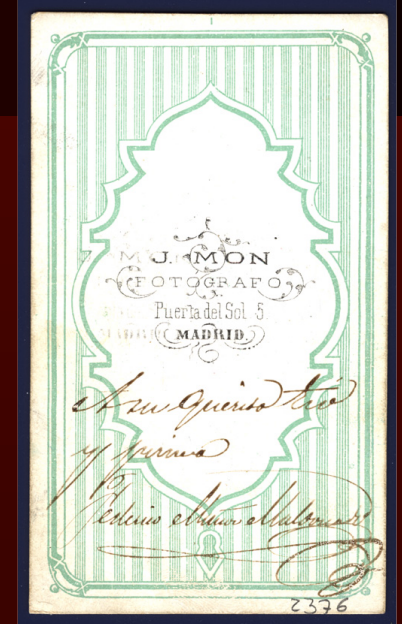 J. MON
FOTOGRAFO
Puerta del Sol 5.
MADRID.
A su querido tio
y primo
Federico Muñoz Maldonado
2376